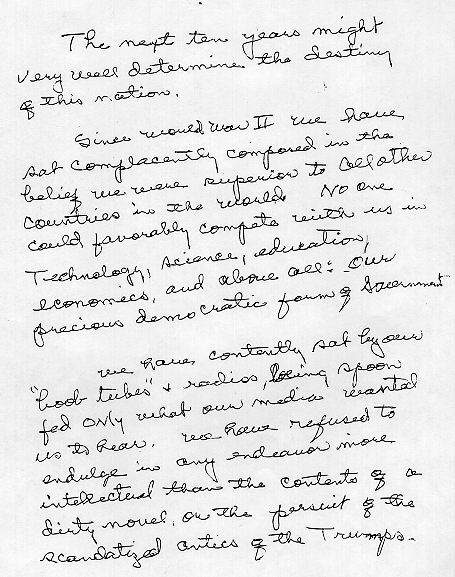 The next ten years might
very well determine the destiny
of this nation.
Since World War II we have
sat complacently composed in the
belief we were superior to all other
countries in the world. No one
could favorably compete with us in
Technology, science, education,
economics, and above all: Our
precious democratic form of Government
We have contently sat by our
"boob tubes" & radios, being spoon
fed only what our media wanted
us to hear. We have refused to
endulge in any endeavor more
intellectual than the contents of a
dirty novel, or the persuit of the
scandatized antics of the Trumps.